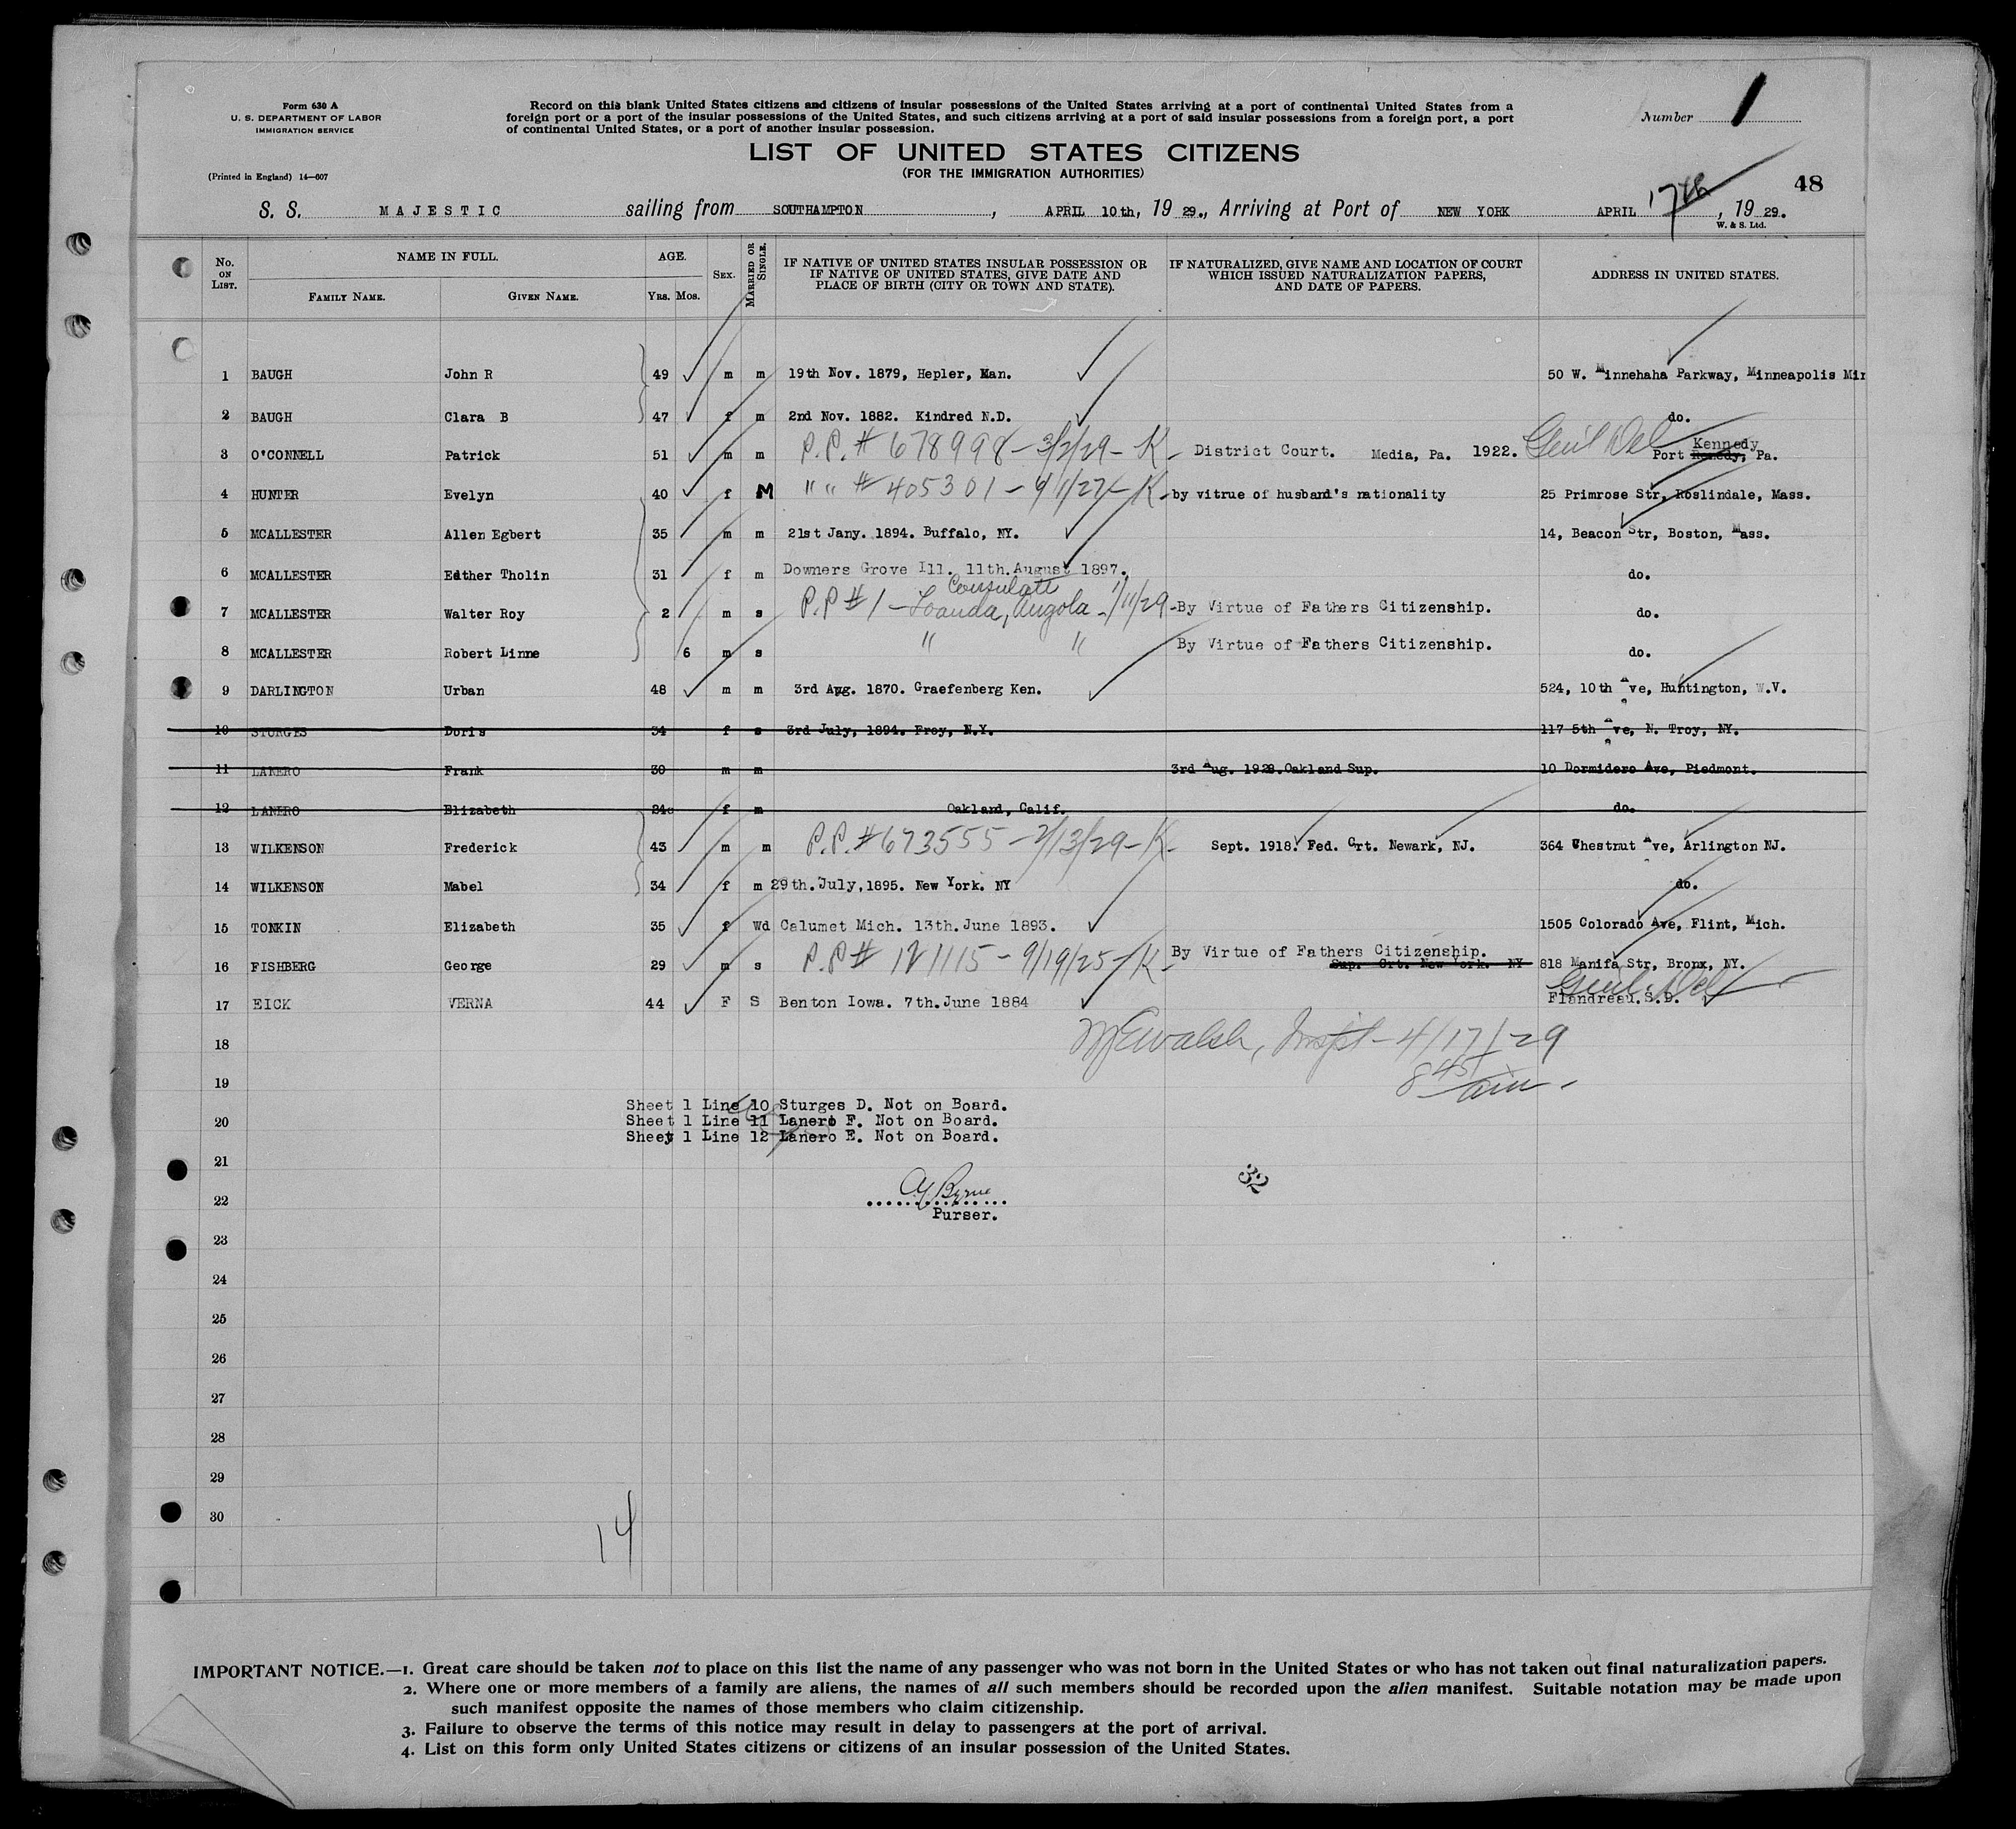 Form 630 A
U. S. DEPARTMENT OF LABOR
IMMIGRATION SERVICE
(Printed in England) 14—607
Record on this blank United States citizens and citizens of insular possessions of the United States arriving at a port of continental United States from a
foreign port or a port of the insular possessions of the United States, and such citizens arriving at a port of said insular possessions from a foreign port, a port
of continental United States, or a port of another insular possession.
Number 1
LIST OF UNITED STATES CITIZENS
(FOR THE IMMIGRATION AUTHORITIES)
48
S. S. MAJESTIC sailing from SOUTHAMPTON, APRIL 10th, 19 29., Arriving at Port of NEW YORK APRIL 17th, 19 29.
W. & S. Ltd.
No. ON LIST. NAME IN FULL. FAMILY NAME. GIVEN NAME. AGE. YRS. MOS. SEX. MARRIED OR SINGLE. IF NATIVE OF UNITED STATES INSULAR POSSESSION OR IF NATIVE OF UNITED STATES, GIVE DATE AND PLACE OF BIRTH (CITY OR TOWN AND STATE). IF NATURALIZED, GIVE NAME AND LOCATION OF COURT WHICH ISSUED NATURALIZATION PAPERS, AND DATE OF PAPERS. ADDRESS IN UNITED STATES.
1 BAUGH John R 49 m m 19th Nov. 1879, Hepler, Kan. 50 W. Minnehaha Parkway, Minneapolis Min
2 BAUGH Clara B 47 f m 2nd Nov. 1882. Kindred N.D. do.
3 O'CONNELL Patrick 51 m m P.P. # 678998 - 3/2/29 - K - District Court. Media, Pa. 1922. Genl Del Port Remedy, Kennedy Pa.
4 HUNTER Evelyn 40 f M " " # 405301 - 4/1/27 - K - by vitrue of husband's nationality 25 Primrose Str, Roslindale, Mass.
5 MCALLESTER Allen Egbert 35 m m 21st Jany. 1894. Buffalo, NY. 14, Beacon Str, Boston, Mass.
6 MCALLESTER Edther Tholin 31 f m Downers Grove Ill. 11th.August 1897. do.
7 MCALLESTER Walter Roy 2 m s P.P # 1 - Consulate Loanda, Angola - 1/11/29 - By Virtue of Fathers Citizenship. do.
8 MCALLESTER Robert Linne 6 m s " " By Virtue of Fathers Citizenship. do.
9 DARLINGTON Urban 48 m m 3rd Aug. 1870. Graefenberg Ken. 524, 10th Ave, Huntington, W.V.
10 STURGES Doris 34 f s 3rd July, 1894. Froy, N.Y. 117 5th Ave, N. Troy, NY.
11 LANERO Frank 30 m m 3rd Aug. 1928. Oakland Sup. 10 Dormidere Ave, Piedmont.
12 LANERO Elizabeth 24 f m Oakland, Calif. do.
13 WILKENSON Frederick 43 m m P.P. # 673555 - 2/13/29 - K - Sept. 1918. Fed. Crt. Newark, NJ. 364 Chestnut Ave, Arlington NJ.
14 WILKENSON Mabel 34 f m 29th.July,1895. New York. NY do.
15 TONKIN Elizabeth 35 f Wd Calumet Mich. 13th.June 1893. 1505 Colorado Ave, Flint, Mich.
16 FISHBERG George 29 m s P.P # 121115 - 9/19/25 - K - By Virtue of Fathers Citizenship. Sup. Crt. New York. NY 818 Manifa Str, Bronx, NY.
17 EICK VERNA 44 F S Benton Iowa. 7th.June 1884 Genl. Del Flandreau.S.D.
18 McEwalsh, Inspt - 4/17/29
19 8 45 am.
Sheet 1 Line 10 Sturges D. Not on Board.
20 Sheet 1 Line 11 Lanero F. Not on Board.
Sheet 1 Line 12 Lanero E. Not on Board.
21
32
22 A.J. Byrne
Purser.
23
24
25
26
27
28
29
30
14
IMPORTANT NOTICE.—1. Great care should be taken not to place on this list the name of any passenger who was not born in the United States or who has not taken out final naturalization papers.
2. Where one or more members of a family are aliens, the names of all such members should be recorded upon the alien manifest. Suitable notation may be made upon
such manifest opposite the names of those members who claim citizenship.
3. Failure to observe the terms of this notice may result in delay to passengers at the port of arrival.
4. List on this form only United States citizens or citizens of an insular possession of the United States.